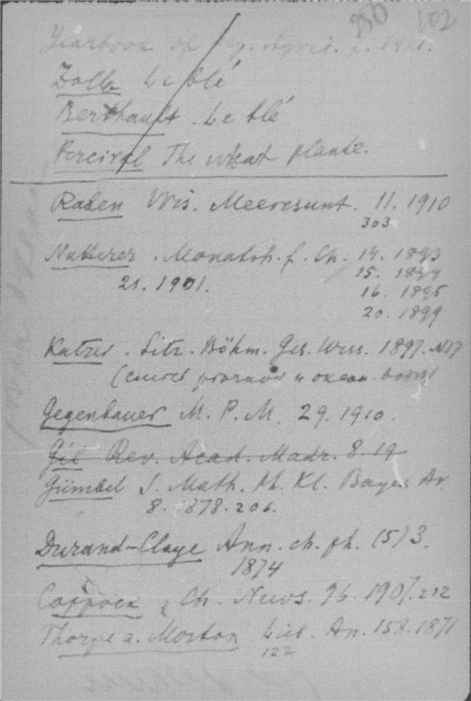 230 102
Yearbook of Agric. f.
Zolla Le blé
Berthault. Le blé
Percival The wheat plante.
Raben Wis. Meeresunt. 11. 1910
303
Natterer. Monatsh. f. Ch. 14. 1893
15. 1894
21. 1901.
16. 1895
20. 1899
Katzer. Sitz. Böhm. Ges. Wiss. 1897. N17
(смеси и океан. воды)
Gegenbauer M. P. M. 29. 1910.
Gil Rev. Acad. Madr. 8. 19
Gümbel S. Math. Ph. Kl. Bayer. Ak.
8. 1878. 206.
Durand-Claye Ann. ch. ph. (5) 3.
1874
Coppock, Ch. News. 96. 1907. 212
Thorpe a. Morton Lieb. An. 158. 1871
122